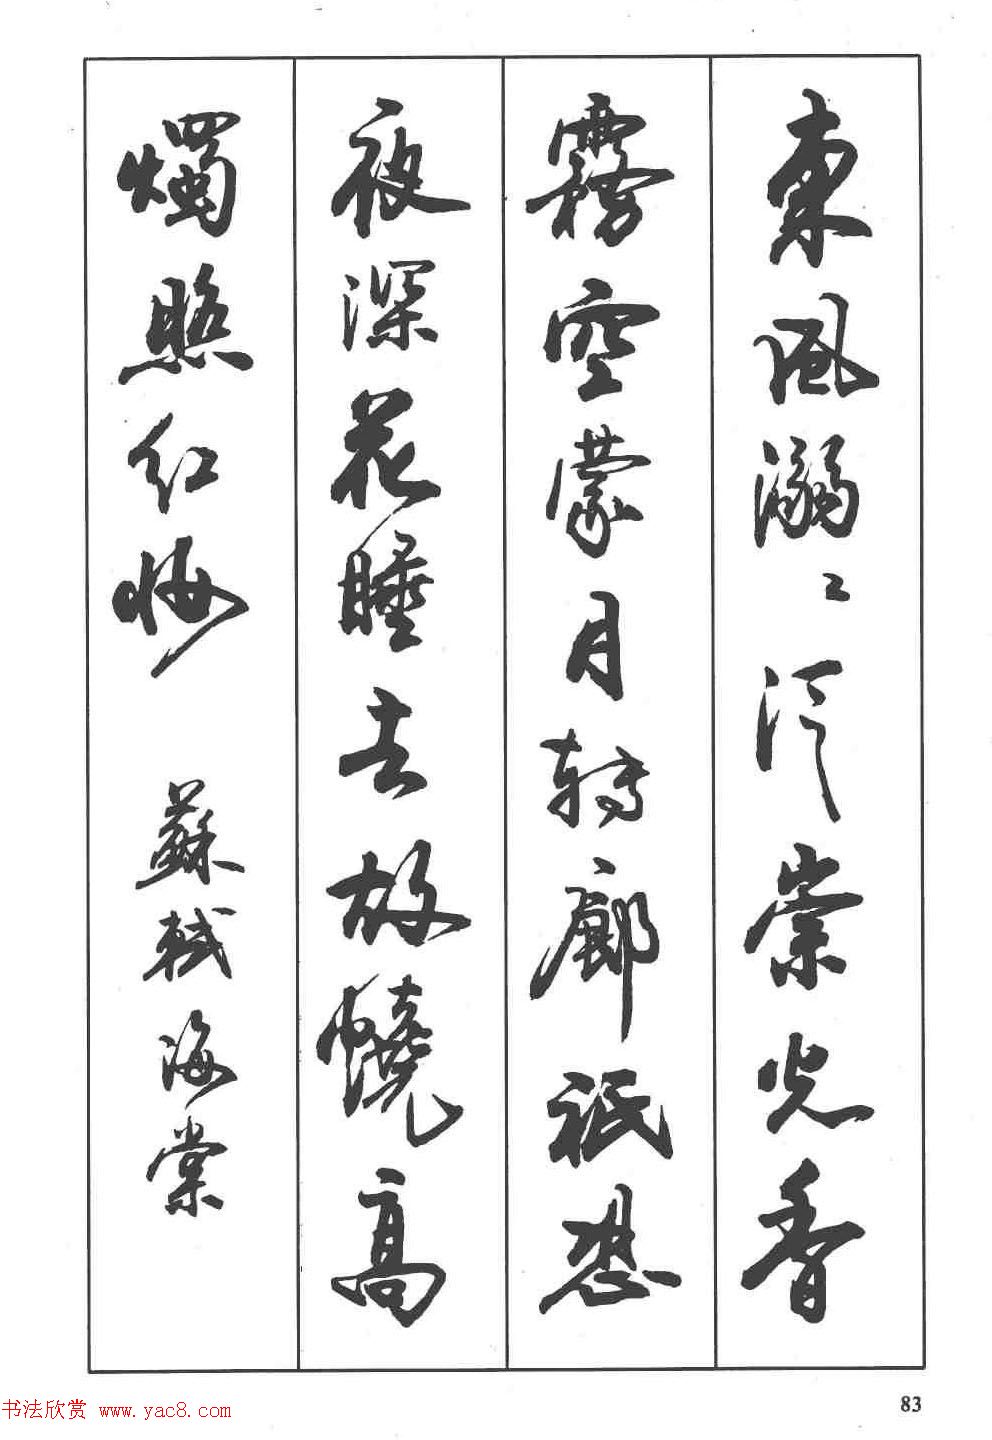 東風溺〻泛崇光香
霧空濛月轉廊祇恐
夜深花睡去故燒高
燭照紅悔 蘇軾海棠
83
书法欣赏 www.yac8.com